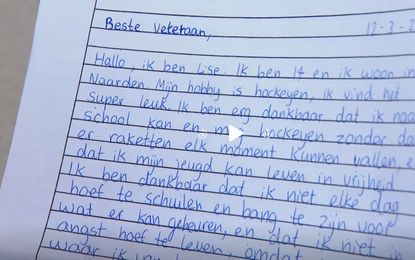 Beste Veteraan,
12-3-2
Hallo, ik ben Lise. Ik ben 14 en ik woon in
Naarden. Mijn hobby is hockeyen, ik vind het
super leuk. Ik ben erg dankbaar dat ik naa
school kan en mag hockeyen zonder da
er raketten elk moment kunnen vallen, e
dat ik mijn jeugd kan leven in vrijheid
Ik ben dankbaar dat ik niet elke dag
hoef te schuilen en bang te zijn voor
wat er kan gebeuren, en dat ik niet in
angst hoef te leven, omdat
waar ik